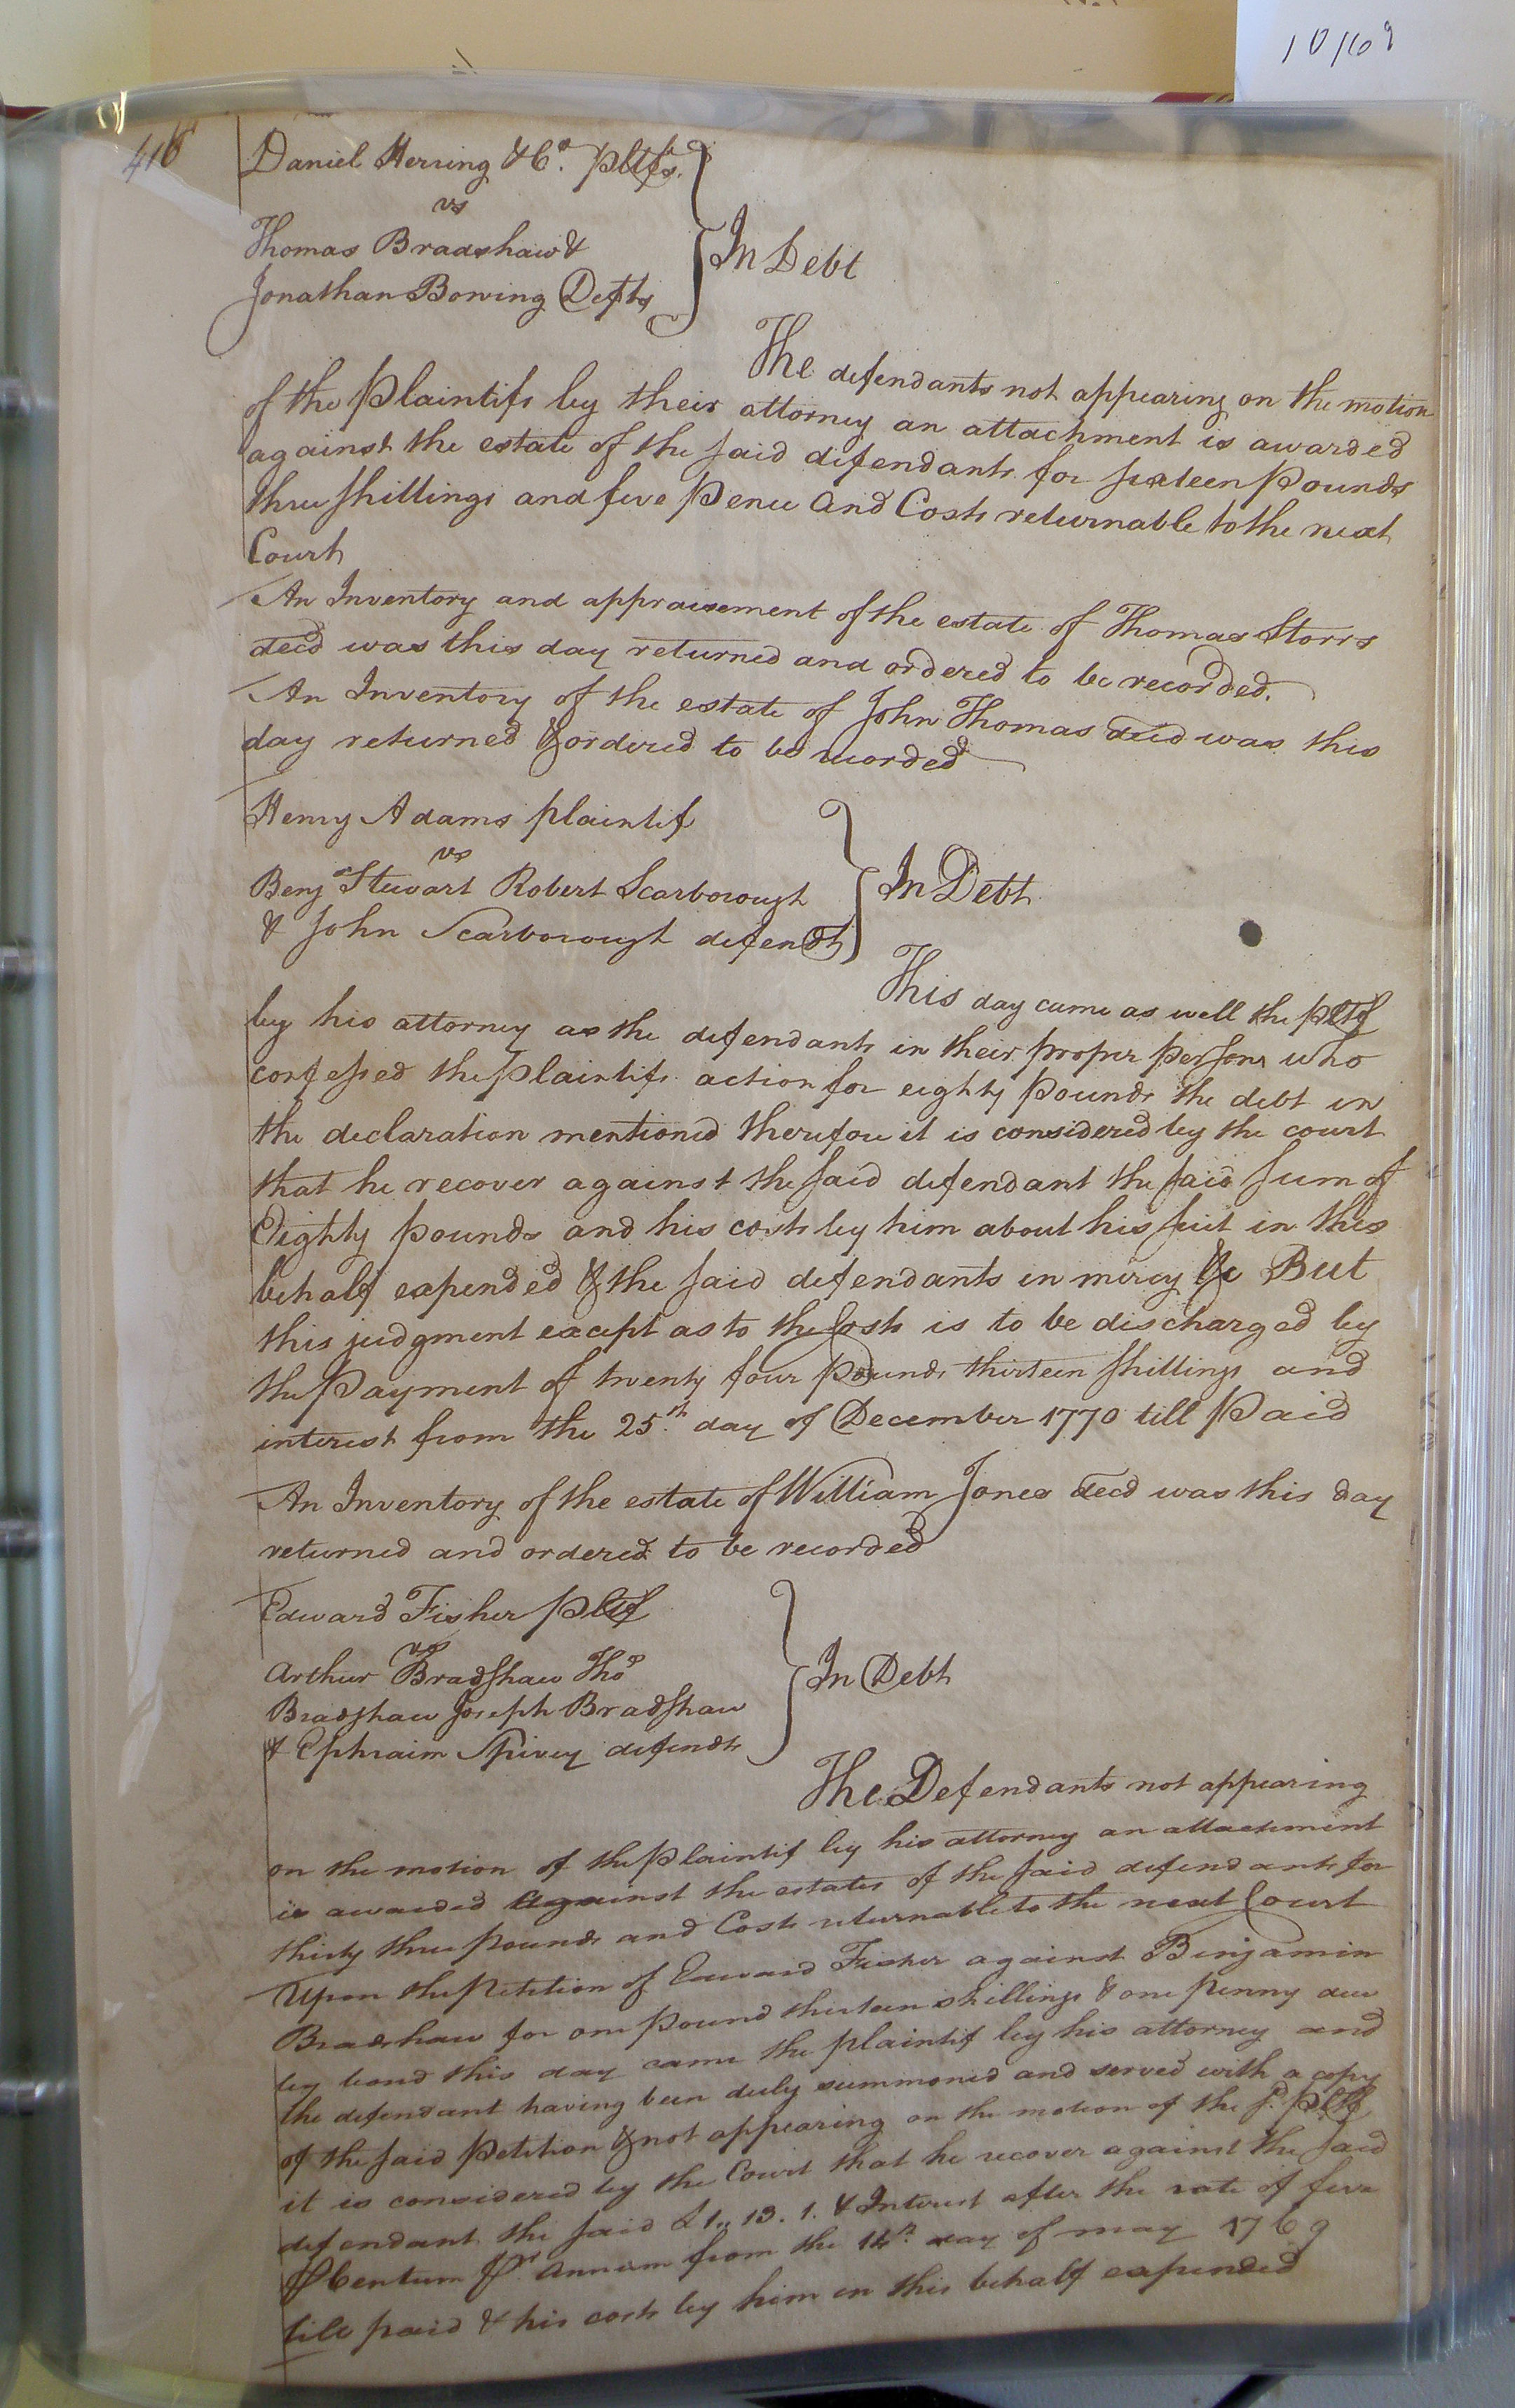 416
Daniel Herring & Co. pltfs.
vs
Thomas Bradshaw &
Jonathan Bowing Defts
In Debt
The defendants not appearing on the motion
of the plaintifs by their attorney an attachment is awarded
against the estate of the said defendants for sixteen pounds
three shillings and five pence and Costs returnable to the next
Court
An Inventory and appraisement of the estate of Thomas Storrs
decd was this day returned and ordered to be recorded.
An Inventory of the estate of John Thomas decd was this
day returned & ordered to be recorded
Henry Adams plaintif
vs
Benj Stuvart Robert Scarborough
& John Scarborough defendts
In Debt
This day came as well the pltf
by his attorney as the defendants in their proper persons who
confessed the plaintifs action for eighty pounds the debt in
the declaration mentioned therefore it is considered by the court
that he recover against the said defendant the said sum of
Eighty pounds and his costs by him about his suit in this
behalf expended & the said defendants in mercy &c But
this judgment except as to the Costs is to be discharged by
the payment of twenty four pounds thirteen shillings and
interest from the 25th day of December 1770 till paid
An Inventory of the estate of William Jones decd was this day
returned and ordered to be recorded
Edward Fisher pltf
vs
Arthur Bradshaw Thos
Bradshaw Joseph Bradshaw
& Ephraim Spivey defendts
In Debt
The Defendants not appearing
on the motion of the plaintif by his attorney an attachment
is awarded against the estates of the said defendants for
thirty three pounds and Costs returnable to the next Court
Upon the Petition of Edward Fisher against Benjamin
Bradshaw for one pound thirteen shillings & one penny due
by bond this day came the plaintif by his attorney and
the defendant having been duly summoned and served with a copy
of the said petition & not appearing on the motion of the sd. pltf
it is considered by the Court that he recover against the said
defendant the said £1.. 13. 1. & Interest after the rate of five
P Centum Pr. annum from the 14th day of may 1769
till paid & his costs by him in this behalf expended